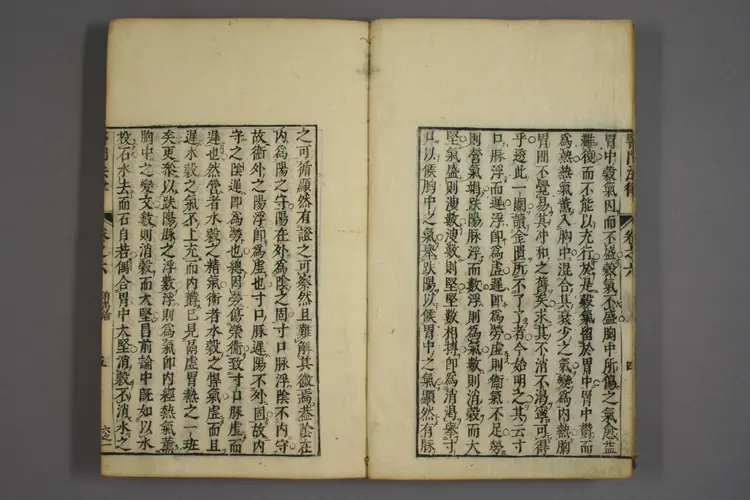 醫門法律
卷之六
四
胃中穀氣因而不盛穀氣不盛胸中所傷之氣愈益
難復而不能以充行於是穀氣留於胃中胃中鬱而
為熱熱氣薰入胸中混合其衰少之氣變為內熱胸
胃間不覺易其冲和之舊矣求其不消不渴寧可得
乎透此一關讀金匱所不了了者今始明之其云寸
口脉浮而遲浮即為虛遲即為勞虛則衞氣不足勞
則營氣竭趺陽脉浮而數浮則為氣數則消穀而大
堅氣盛則溲數溲數則堅堅數相搏即為消渴舉寸
口以候胸中之氣舉趺陽以候胃中之氣顯然有脉
之可循顯然有證之可察然且難解其微焉葢陰在
內為陽之守陽在外為陰之固寸口脉浮陰不內守
故衞外之陽浮即為虛也寸口脉遲陽不外固故內
守之陰遲即為勞也總因勞傷榮衞致寸口脉虛而
遲也然營者水穀之精氣衞者水穀之悍氣虛而且
遲水穀之氣不上充而內鬱已見膈虛胃熱之一班
矣更參以趺陽脉之浮數浮則為氣即內經熱氣薰
胸中之變文數則消穀而大堅昌前論中既如以水
投石水去而石自若偶合胃中大堅消穀不消水之
五